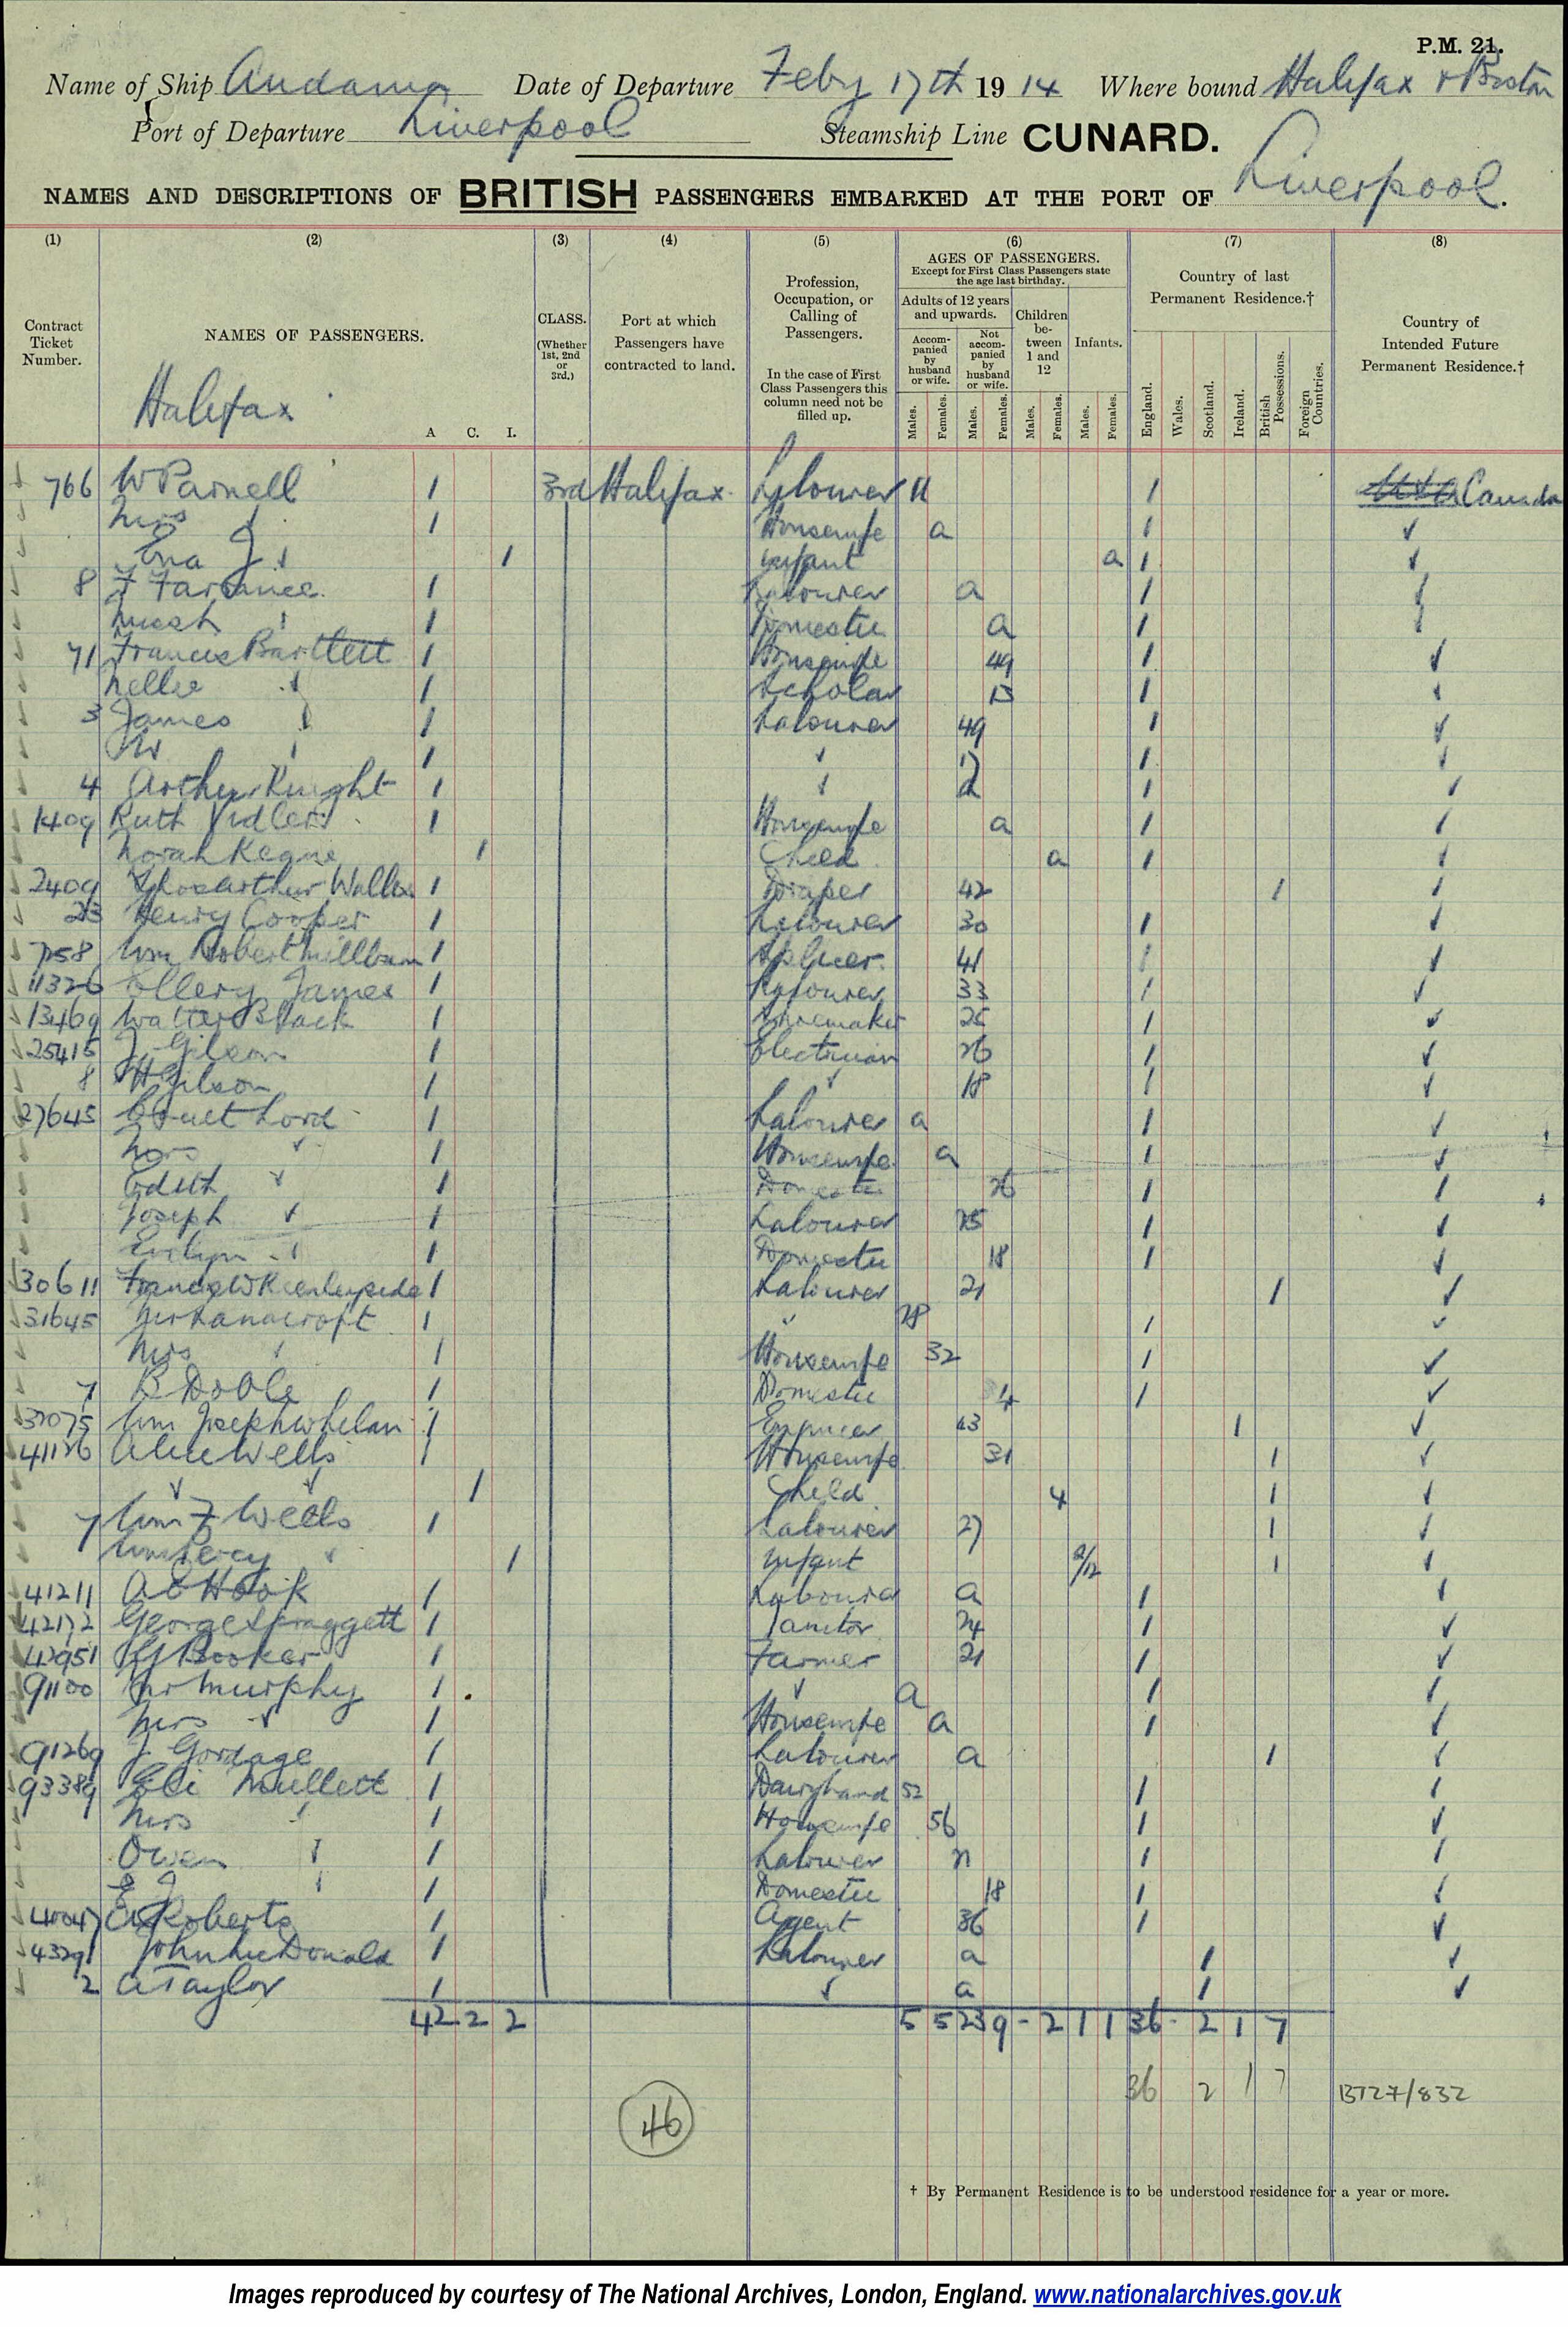 P.M. 21.
Name of Ship Andania Date of Departure Feby 17th 19 14 Where bound Halifax & Boston
Port of Departure Liverpool Steamship Line CUNARD.
NAMES AND DESCRIPTIONS OF BRITISH PASSENGERS EMBARKED AT THE PORT OF Liverpool.
(1) (2) (3) (4) (5) (6) (7) (8)
Contract Ticket Number.
NAMES OF PASSENGERS.
Halifax
A C. I.
CLASS. (Whether 1st, 2nd or 3rd.)
Port at which Passengers have contracted to land.
Profession, Occupation, or Calling of Passengers.
In the case of First Class Passengers this column need not be filled up.
AGES OF PASSENGERS.
Except for First Class Passengers state the age last birthday.
Adults of 12 years and upwards.
Accompanied by husband or wife.
Not accompanied by husband or wife.
Children between 1 and 12
Infants.
Males. Females. Males. Females. Males. Females. Males. Females.
Country of last Permanent Residence.†
England. Wales. Scotland. Ireland. British Possessions. Foreign Countries.
Country of Intended Future Permanent Residence.†
766 W Parnell 1 3rd Halifax Labourer 1 Canada
Mrs 1 Housewife a 1
1 Infant a 1
8 1 Labourer a 1
1 Domestic a 1
71 Frances Bartlett 1 Housewife 49 1
Nellie 1 Scholar 13 1
3 James 1 Labourer 49 1
W 1 17 1
4 Arthur Knight 1 1
1409 Ruth Vidler 1 Housewife a 1
Norah Keane 1 Child a 1
2409 Thos Arthur 1 Draper 42 1
23 Henry Cooper 1 Labourer 30 1
7058 Wm Robert Millburn 1 41 1
11326 Ellery James 1 Labourer 33 1
13469 Walter Black 1 Shoemaker 25 1
25415 J. Gilson 1 Electrician 26 1
8 H Gilson 1 18 1
27645 Lord 1 Labourer a 1
Mrs 1 Housewife a 1
Edith 1 Domestic 26 1
Joseph 1 Labourer 25 1
Evelyn 1 Domestic 18 1
30611 Francis W 1 Labourer 21 1
31645 Mr Hanacroft 1 28 1
Mrs 1 Housewife 32 1
7 B Doble 1 Domestic 1
Wm Joseph Whelan 1 Engineer 43 1
41126 Alice Wells 1 Housewife 31 1
1 Child 4 1
7 Wm F Wells 1 Labourer 27 1
Wm Percy 1 Infant /12 1
41211 A E Hook 1 Labourer a 1
42172 George Spraggett 1 Janitor 24 1
42951 Booker 1 Farmer 21 1
91100 Mr Murphy 1 a 1
Mrs 1 Housewife a 1
91269 J Gordage 1 Labourer a 1
93389 Eli Mullett 1 Dairyhand 52 1
Mrs 1 Housewife 56 1
Owen 1 Labourer 1
E J 1 Domestic 18 1
40047 Roberts 1 Agent 36 1
43291 John McDonald 1 Labourer a 1
2 A Taylor 1 a 1
42 2 2 5 5 23 9 - 2 1 1 36 - 2 1 7
36 2 1 7 BT27/832
46
† By Permanent Residence is to be understood residence for a year or more.
Images reproduced by courtesy of The National Archives, London, England. www.nationalarchives.gov.uk